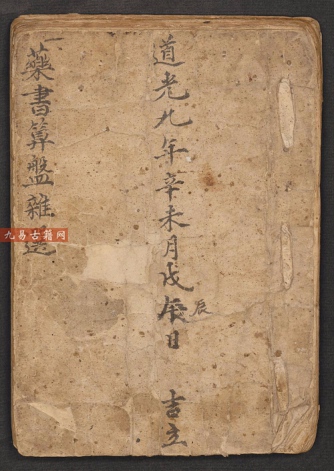 道光九年辛未月戊辰日 吉立
辰
藥書算盤雜
九易古籍网